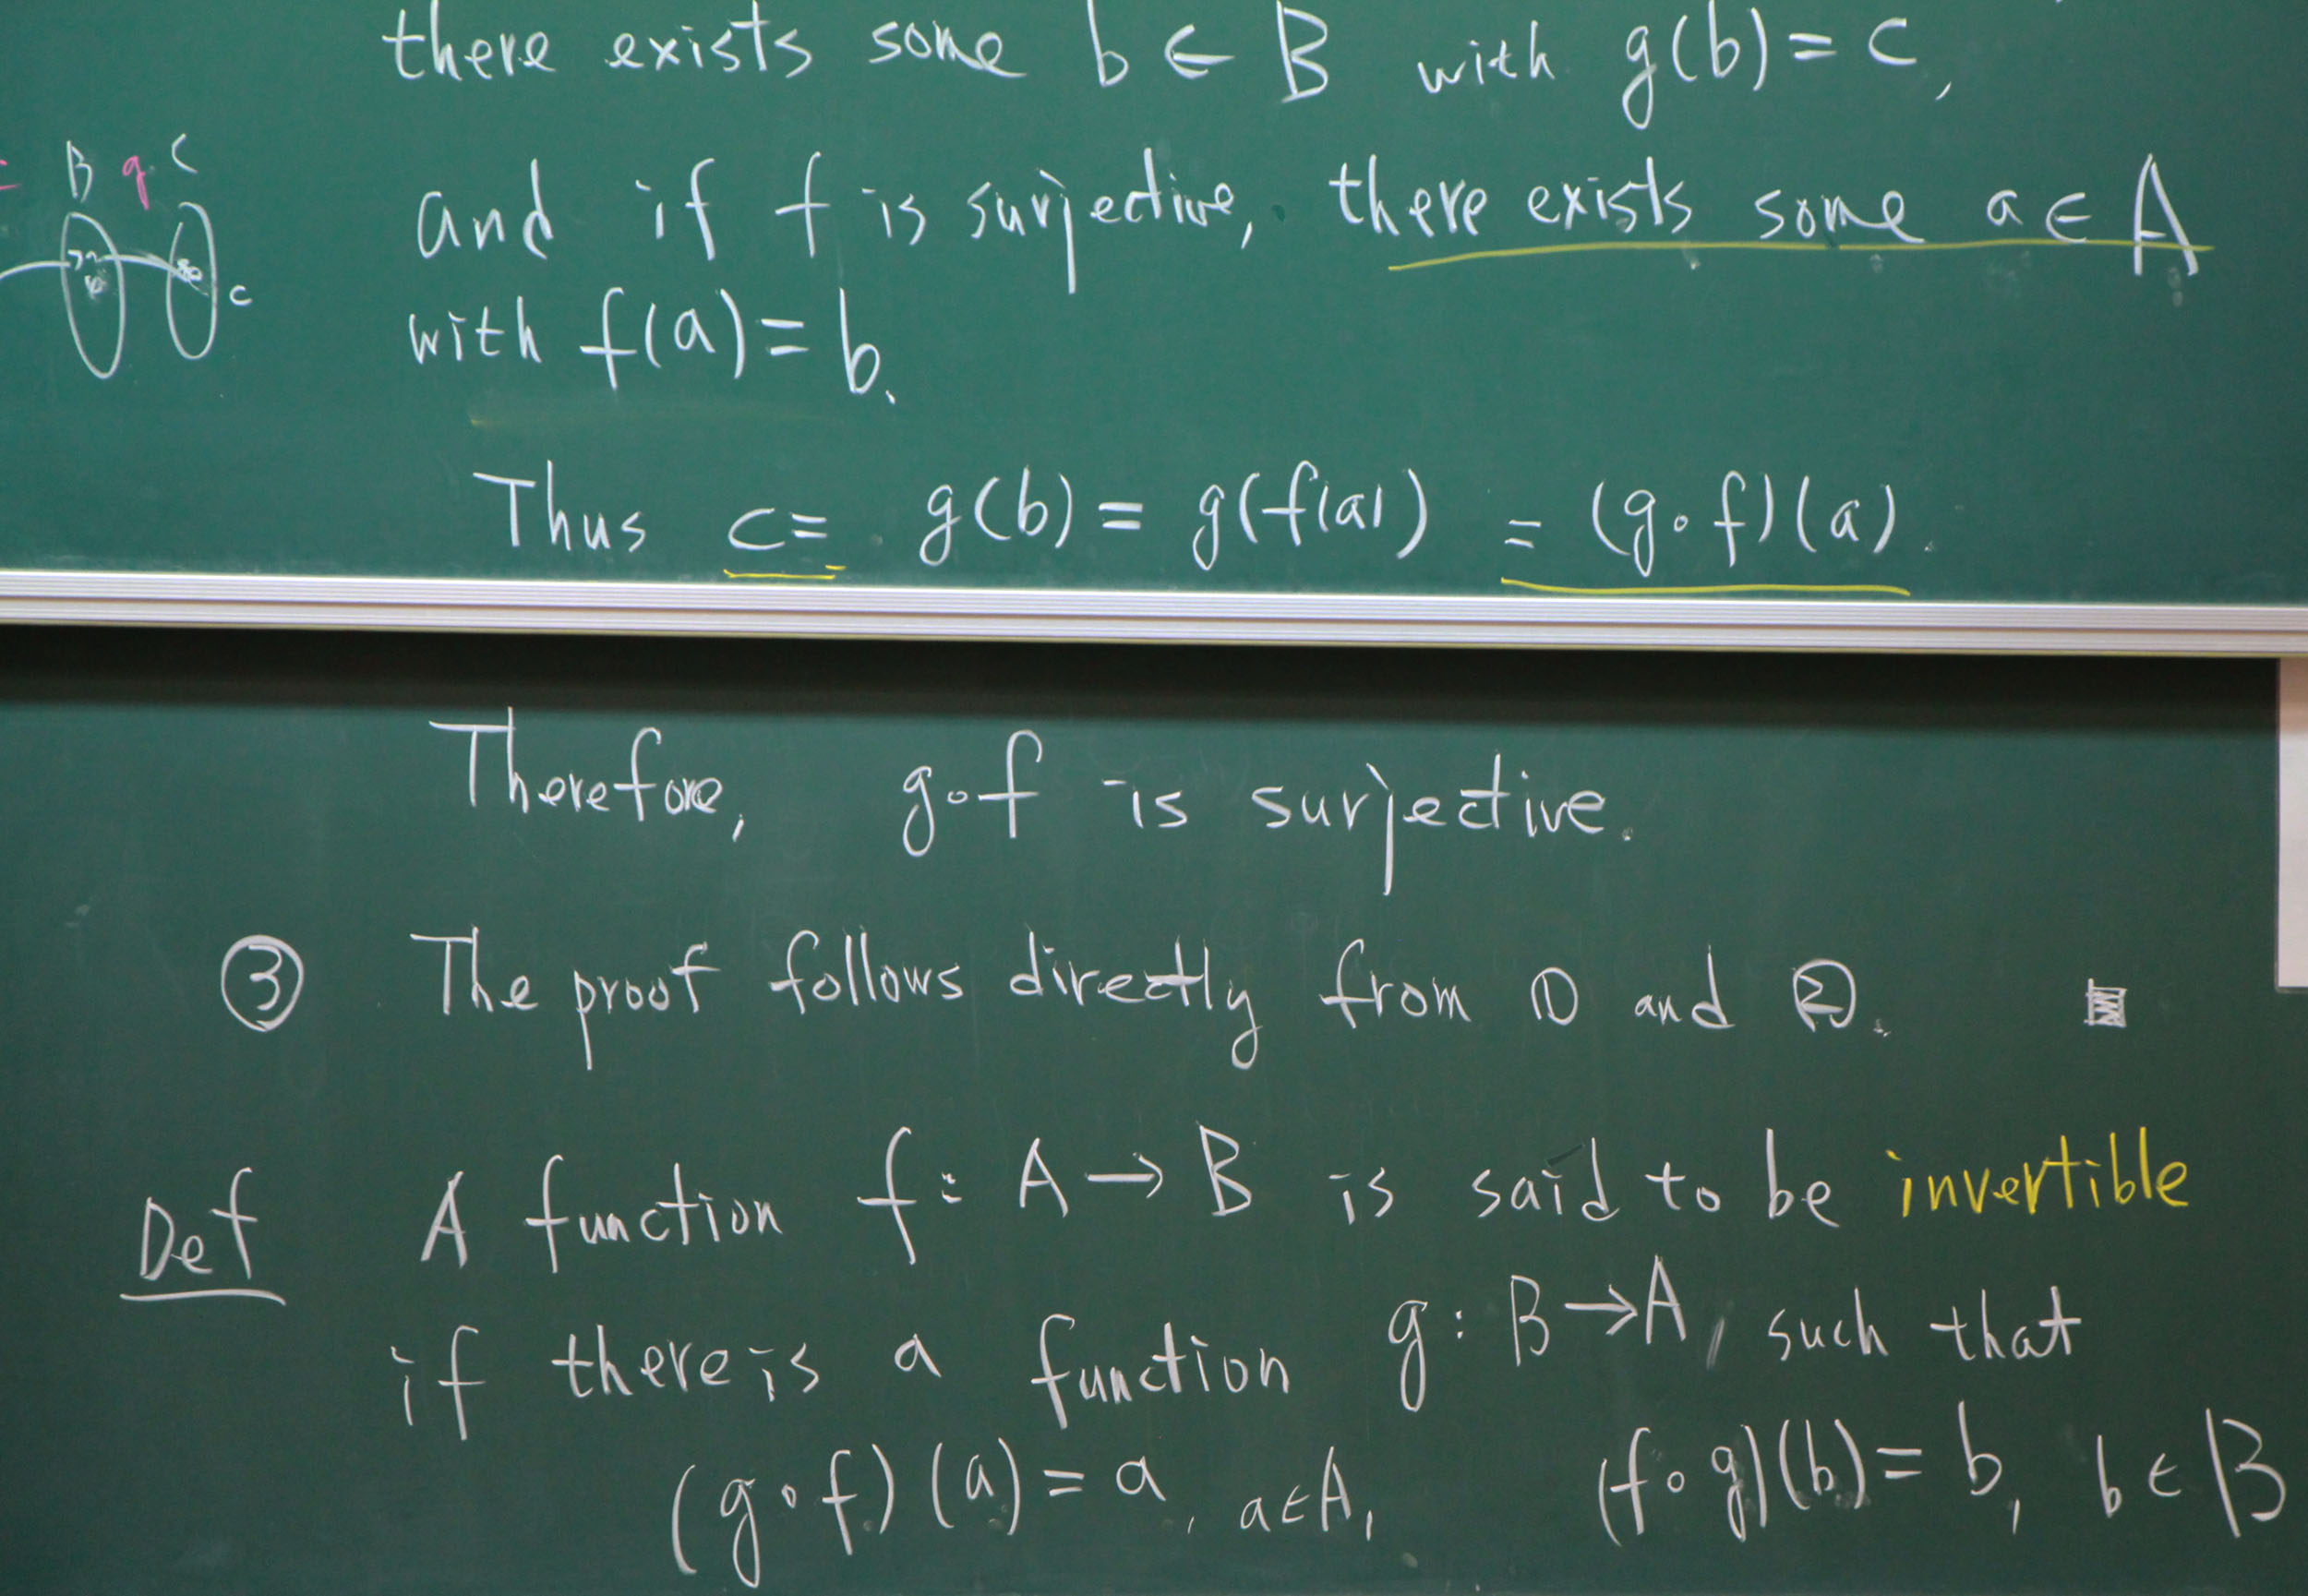 there exists some b ∈ B with g(b) = c,
B g C
and if f is surjective, there exists some a ∈ A
c
with f(a) = b.
Thus c = g(b) = g(f(a)) = (g∘f)(a).
Therefore, g∘f is surjective.
③ The proof follows directly from ① and ②.
Def A function f: A → B is said to be invertible
if there is a function g: B → A, such that
(g∘f)(a) = a, a ∈ A, (f∘g)(b) = b, b ∈ B